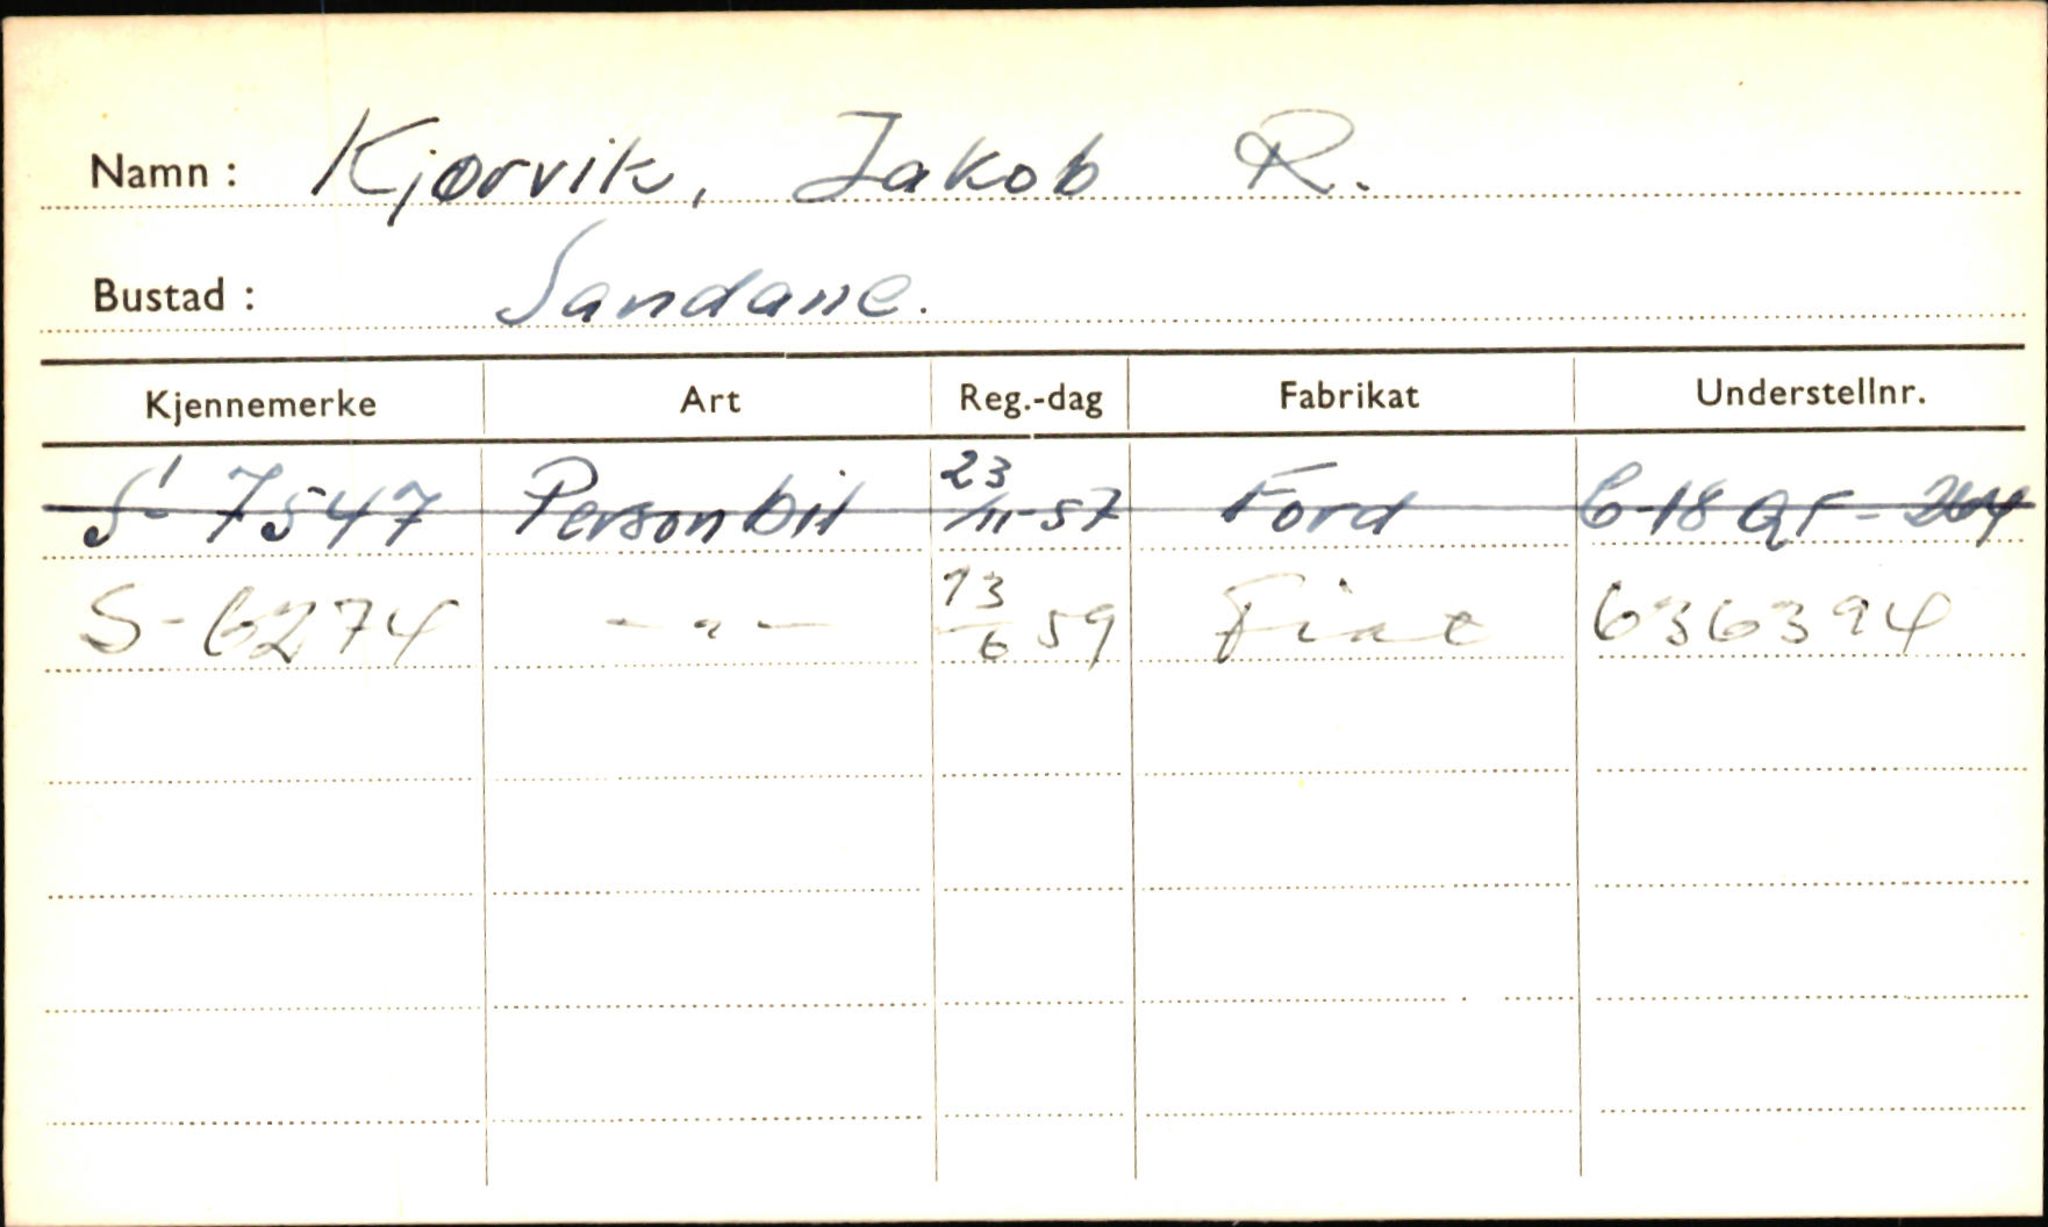 Namn : Kjørvik, Jakob R.
Bustad : Sandane.
Kjennemerke Art Reg.-dag Fabrikat Understellnr.
S-7547 Personbil 23/11-57 Ford C-18 QF-204
S-6274 -"- 13/6 59 Fiat 636394